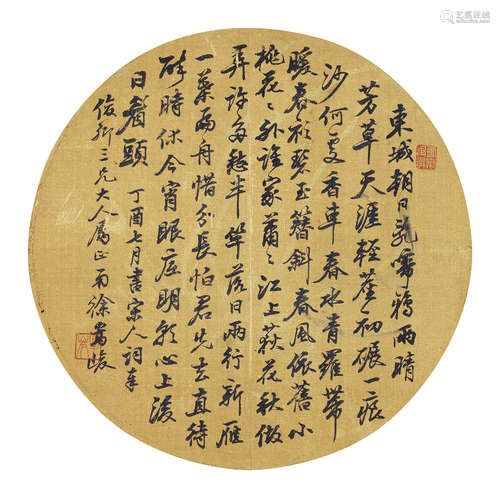 東城朝日亂啼鴉雨晴
芳草天涯輕初碾一痕
沙何處香車春水青羅帶
暖春碧玉簪斜春風依舊小
桃花々外誰家蕭々江上荻花秋做
弄許多愁半竿落日兩行新雁
一葉扁舟惜分長怕君先去直待
醉時休今宵眼底明朝心上後
日眉頭
丁酉七月書宋人詞奉
俊卿三兄大人屬正弟徐